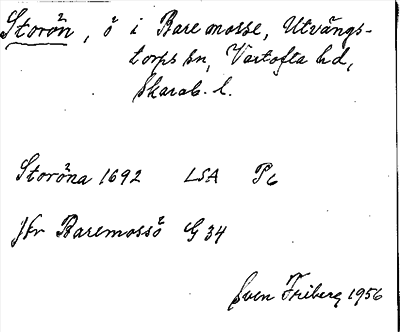 Storön, ö i Baremosse, Utvängs-
torps sn, Vartofta hd,
Skarab. l.
Storöna 1692 LSA P6
Jfr Baremossö G 34
Sven Friberg 1956